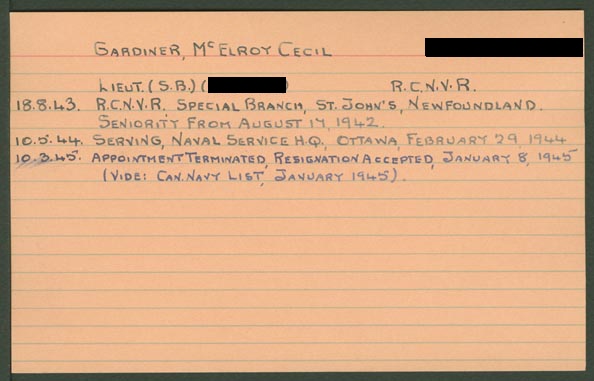 GARDINER, McELROY CECIL
LIEUT. (S.B.) ( ) R.C.N.V.R.
18.8.43. R.C.N.V.R. SPECIAL BRANCH, ST. JOHN'S, NEWFOUNDLAND.
SENIORITY FROM AUGUST 17, 1942.
10.5.44. SERVING, NAVAL SERVICE H.Q. OTTAWA, FEBRUARY 29, 1944
10.3.45. APPOINTMENT TERMINATED, RESIGNATION ACCEPTED, JANUARY 8, 1945
(VIDE: CAN. NAVY LIST, JANUARY 1945).